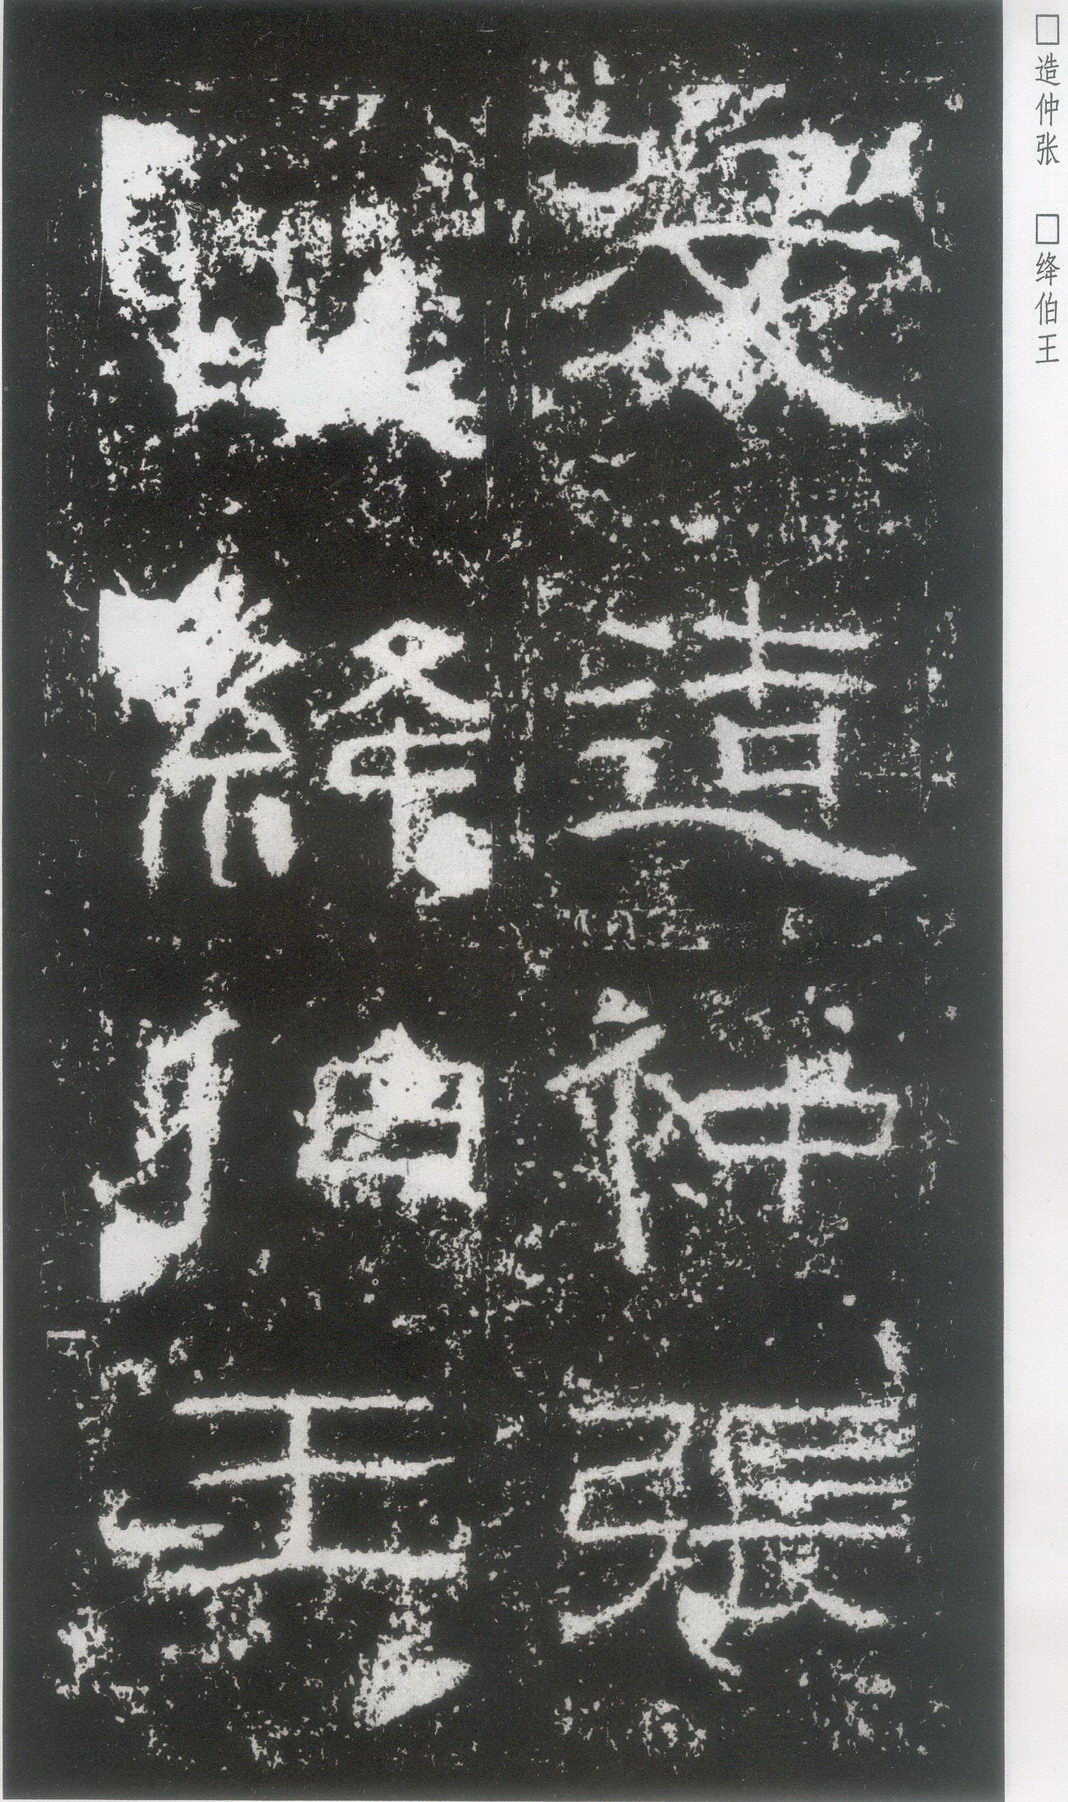 □造仲張
□絳伯王
□造仲张 □绛伯王